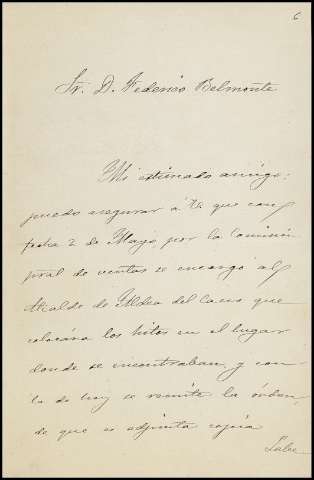 6
Sr. D. Federico Belmonte
Mi estimado amigo:
puedo asegurar á V. que con
fecha 2 de Mayo por la Comision
pral de ventas se encargó al
Alcalde de Aldea del Cano que
colocára los hitos en el lugar
donde se encontraban, y con
la de hoy se remite la órden,
de que es adjunta copia
Sabe